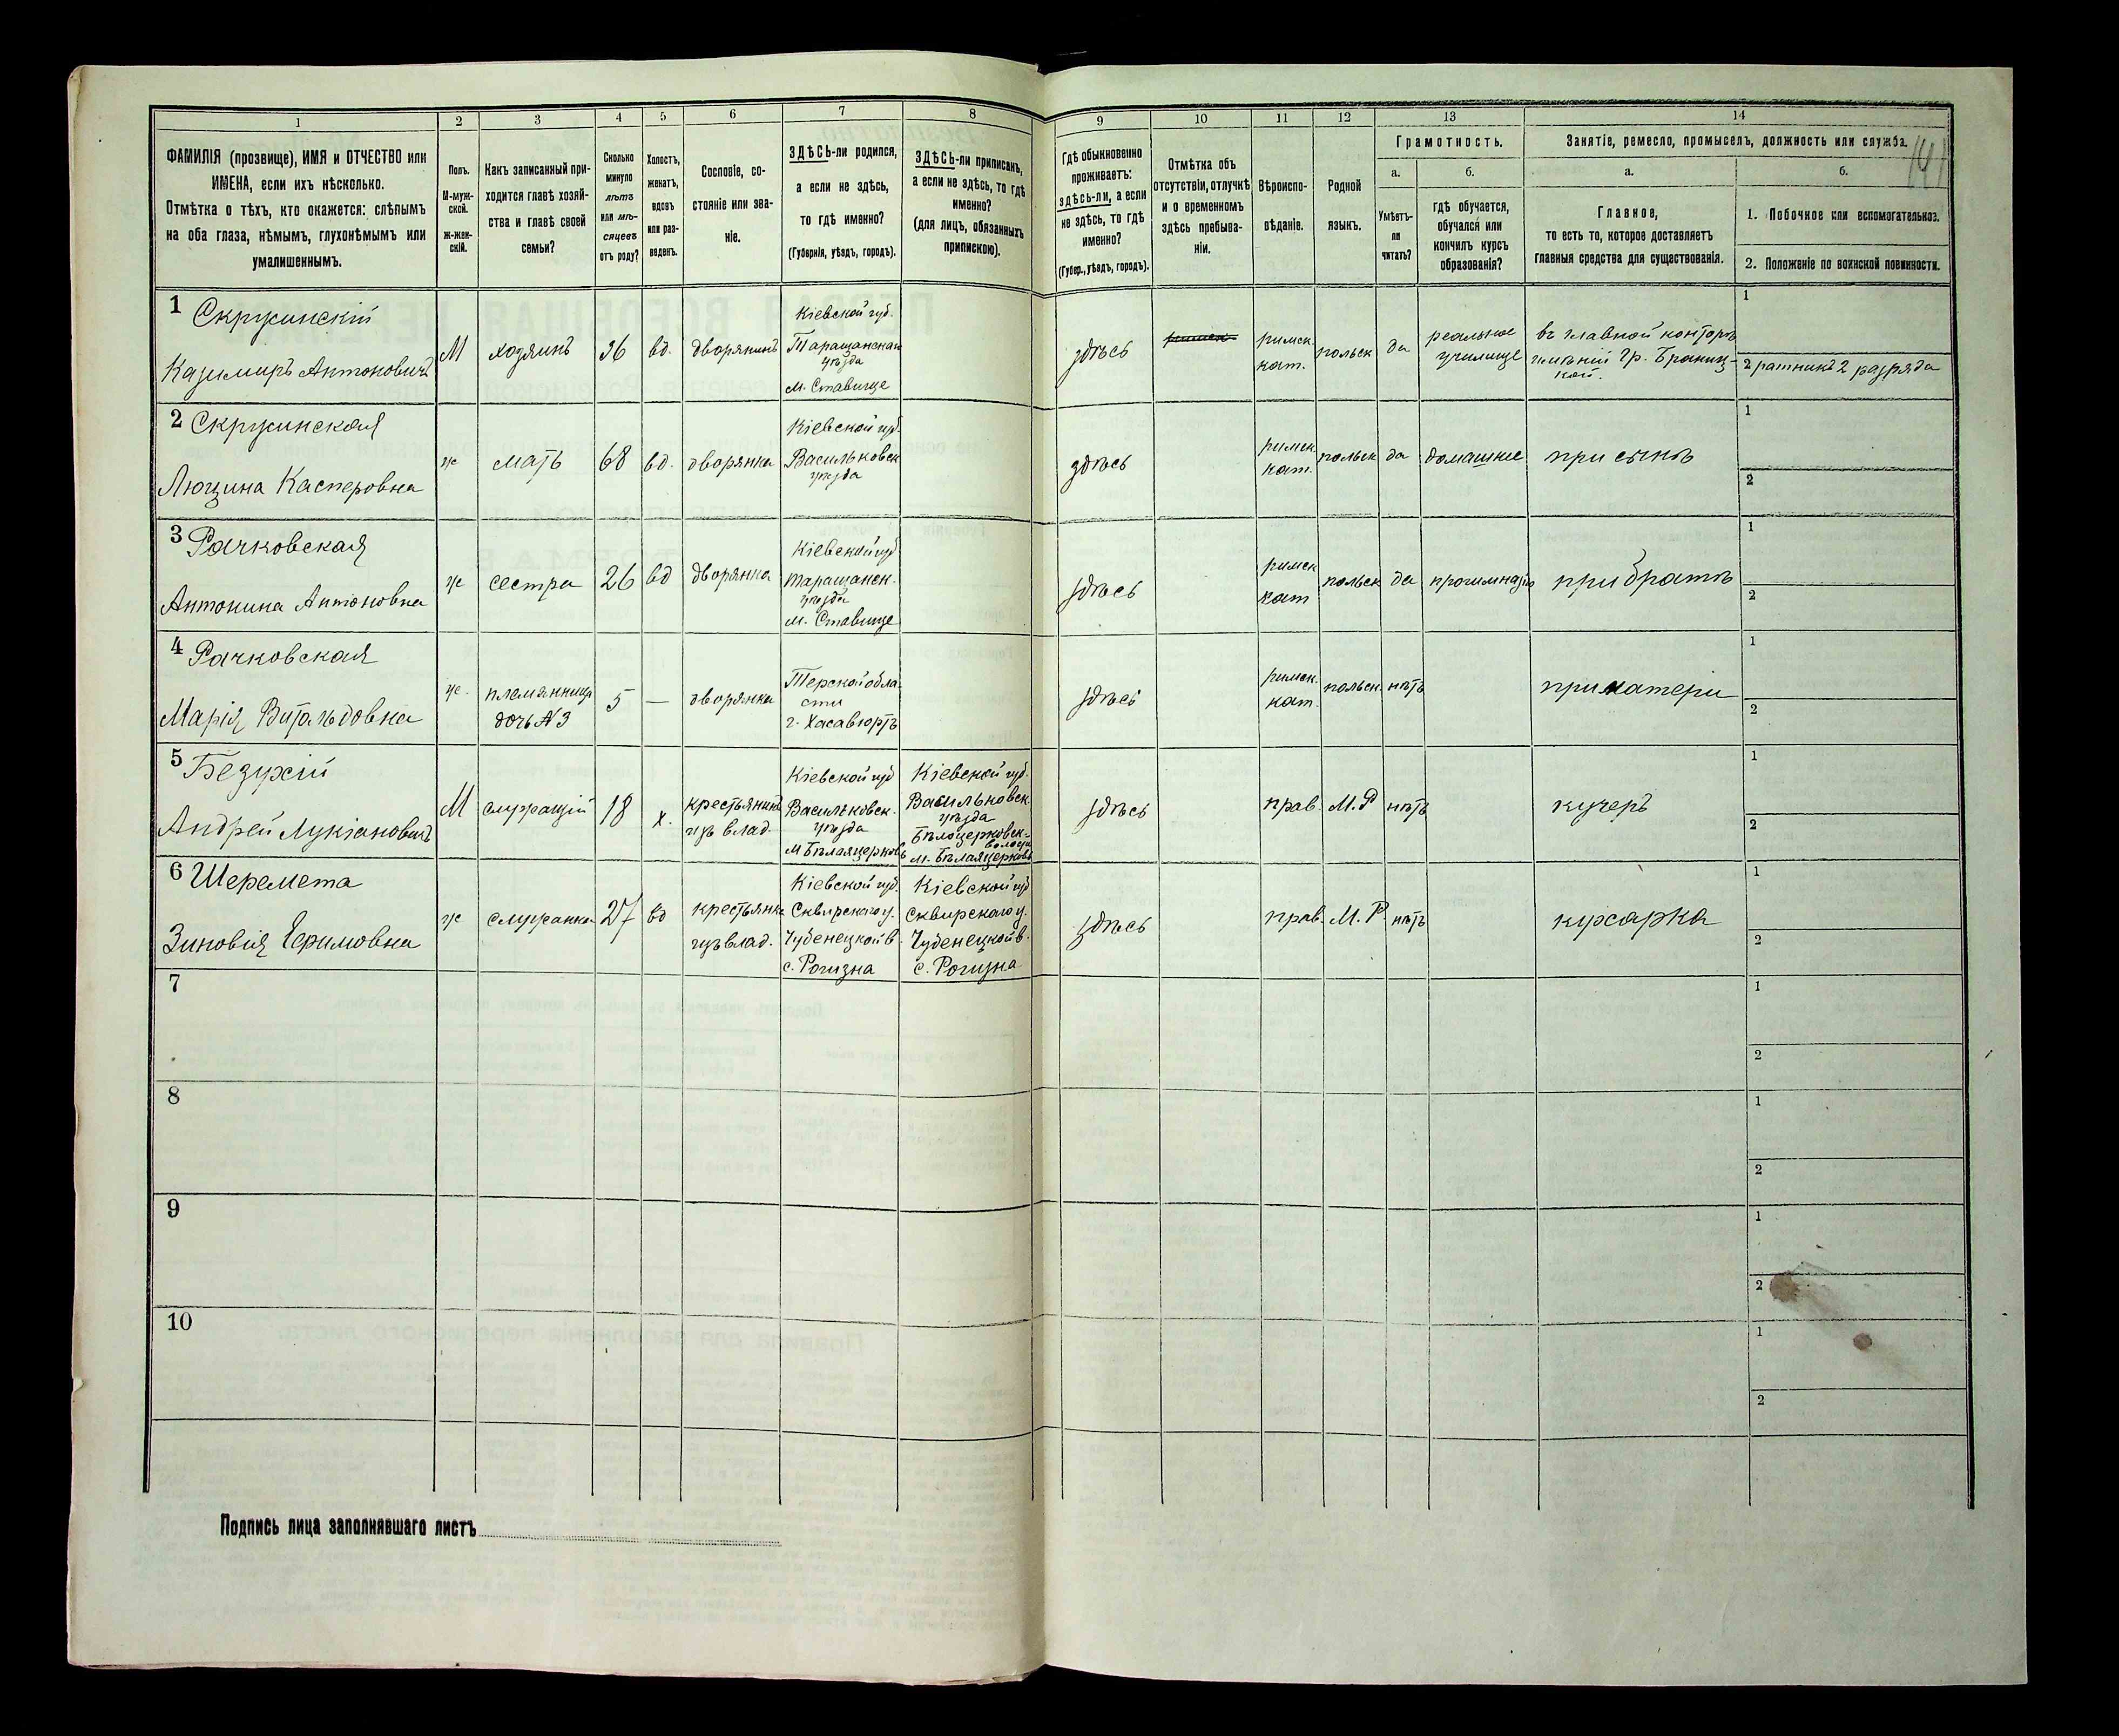 1 2 3 4 5 6 7 8 9 10 11 12 13 14
ФАМИЛІЯ (прозвище), ИМЯ и ОТЧЕСТВО или
ИМЕНА, если ихъ нѣсколько.
Отмѣтка о тѣхъ, кто окажется: слѣпымъ
на оба глаза, нѣмымъ, глухонѣмымъ или
умалишеннымъ.
Полъ.
М-муж-
ской.
Ж-жен-
скій.
Какъ записанный при-
ходится главѣ хозяй-
ства и главѣ своей
семьи?
Сколько
минуло
лѣтъ
или мѣ-
сяцевъ
отъ роду?
Холостъ,
женатъ,
вдовъ
или раз-
веденъ.
Сословіе, со-
стояніе или зва-
ніе.
ЗДѢСЬ-ли родился,
а если не здѣсь,
то гдѣ именно?
(Губернія, уѣздъ, городъ).
ЗДѢСЬ-ли приписанъ,
а если не здѣсь, то гдѣ
именно?
(для лицъ, обязанныхъ
припискою).
Гдѣ обыкновенно
проживаетъ:
здѣсь-ли, а если
не здѣсь, то гдѣ
именно?
(Губер., уѣздъ, городъ).
Отмѣтка объ
отсутствіи, отлучкѣ
и о временномъ
здѣсь пребыва-
ніи.
Вѣроиспо-
вѣданіе.
Родной
языкъ.
Грамотность.
а.
Умѣетъ-
ли
читать?
б.
гдѣ обучается,
обучался или
кончилъ курсъ
образованія?
Занятіе, ремесло, промыселъ, должность или служба.
а.
Главное,
то есть то, которое доставляетъ
главныя средства для существованія.
б.
1. Побочное или вспомогательное.
2. Положеніе по воинской повинности.
1 Скружинскій
Казимиръ Антоновичъ
М
хозяинъ
36
вд.
дворянинъ
Кіевской губ.
Таращанскаго
уѣзда
м. Ставище
здѣсь
римск.
кат.
польск
да
реальное
училище
въ главной конторѣ
имѣній Гр. Браниц-
кой.
1
2 ратникъ 2 разряда
2 Скружинская
Люцина Касперовна
ж
мать
68
вд.
дворянка
Кіевской губ.
Васильковск
уѣзда
здѣсь
римск.
кат.
польск
да
домашнее
при сынѣ
1
2
3 Рачковская
Антонина Антоновна
ж
сестра
26
вд
дворянка
Кіевской губ
Таращанск.
уѣзда
м. Ставище
здѣсь
римск
кат
польск
да
прогимназію
при братѣ
1
2
4 Рачковская
Марія Витольдовна
ж.
племянница
дочь №3
5
—
дворянка
Терской обла
сти
г. Хасавюртъ
здѣсь
римск.
кат.
польск.
нѣтъ
при матери
1
2
5 Безухій
Андрей Лукіановичъ
М
служащій
18
х.
крестьянинъ
изъ влад.
Кіевской губ
Васильковск.
уѣзда
м Бѣлаяцерковь
Кіевской губ.
Васильковск.
уѣзда
Бѣлоцерковск-
волости
м. Бѣлаяцерковь
здѣсь
прав.
М. Р
нѣтъ
кучеръ
1
2
6 Шеремета
Зиновія Ефимовна
ж
служанка
27
вд
крестьянка
изъ влад.
Кіевской губ.
Сквирскаго у.
Чубенецкой в.
с. Рогизна
Кіевской губ
Сквирскаго у.
Чубенецкой в.
с. Рогизна
здѣсь
прав.
М. Р.
нѣтъ
кухарка
1
2
7
1
2
8
1
2
9
1
2
10
1
2
Подпись лица заполнявшаго листъ